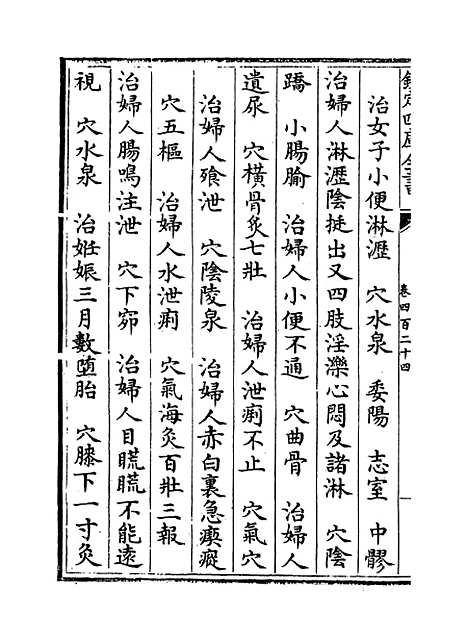 欽定四庫全書
卷四百二十四
治女子小便淋瀝　穴水泉　委陽　志室　中髎
治婦人淋瀝陰挺出又四肢淫濼心悶及諸淋　穴陰
蹻　小腸腧　治婦人小便不通　穴曲骨　治婦人
遺尿　穴橫骨灸七壯　治婦人泄痢不止　穴氣穴
治婦人飱泄　穴陰陵泉　治婦人赤白裏急瘈瘲
穴五樞　治婦人水泄痢　穴氣海灸百壯三報
治婦人腸鳴注泄　穴下窌　治婦人目䀮䀮不能遠
視　穴水泉　治姙娠三月數墮胎　穴膝下一寸灸